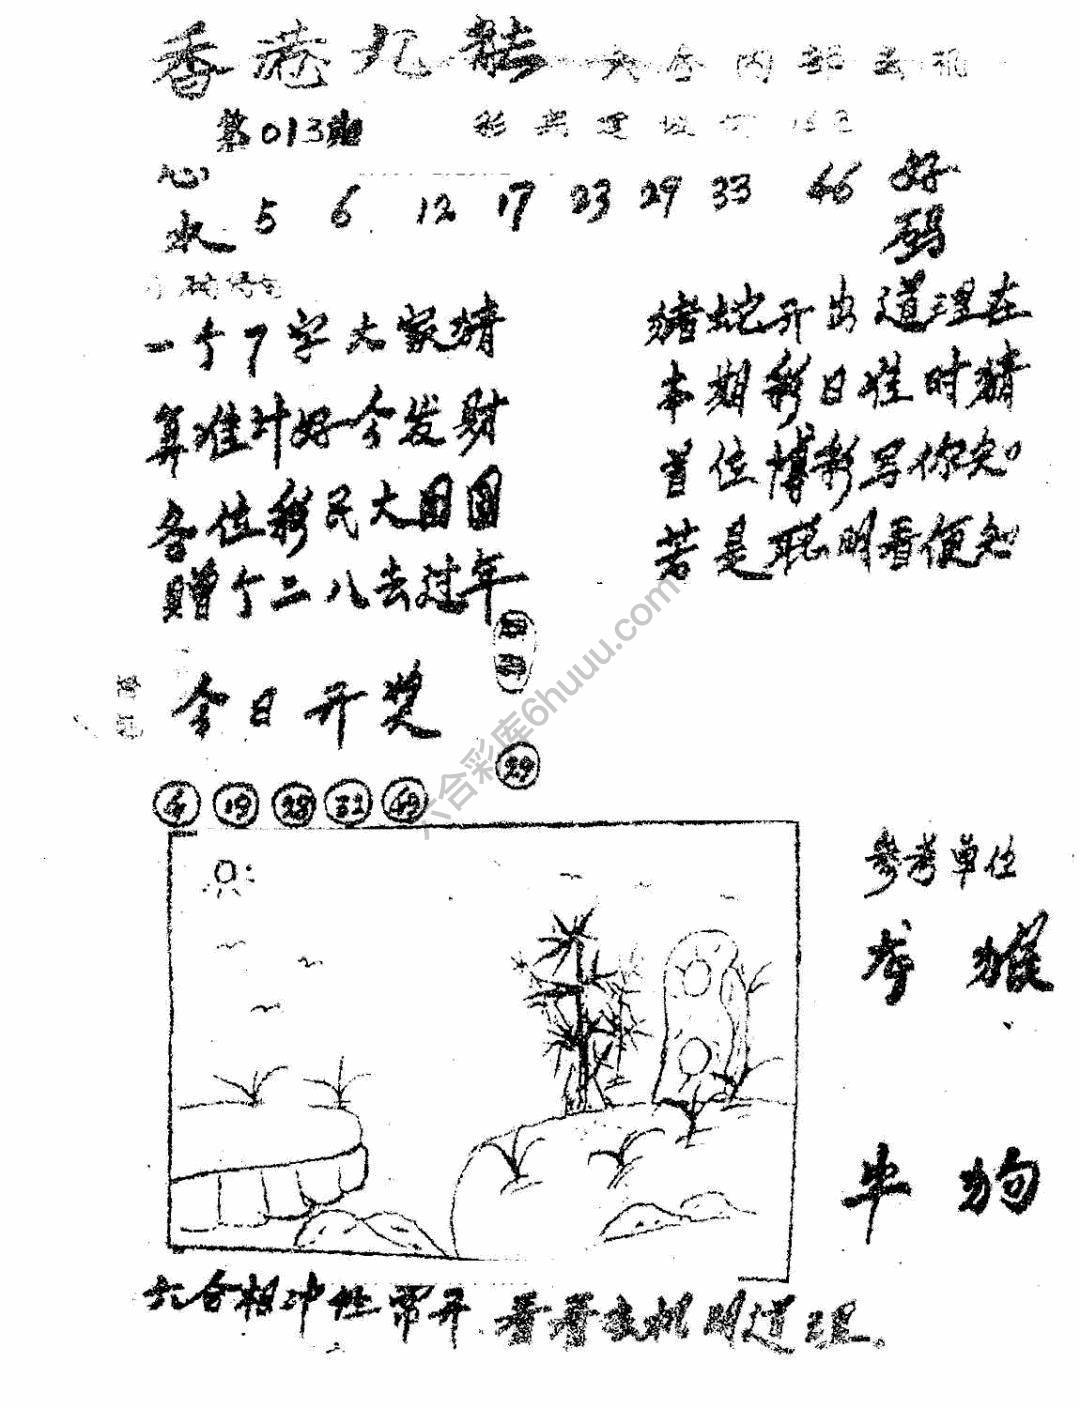 香港九龙 六合内部玄机
第013期
心水 5 6 12 17 23 29 33 46 好码
一个7字大家猜
算准计好今发财
各位彩民大团圆
赠个二八去过年
猪蛇开出道理在
本期彩日准时猜
首位博彩写你知。
若是聪明看便知
今日开奖
29
19 28 32 49
参考单位
龙 猴
牛 狗
六合相冲性常开 看看玄机明道理。
六合彩库6huuu.com